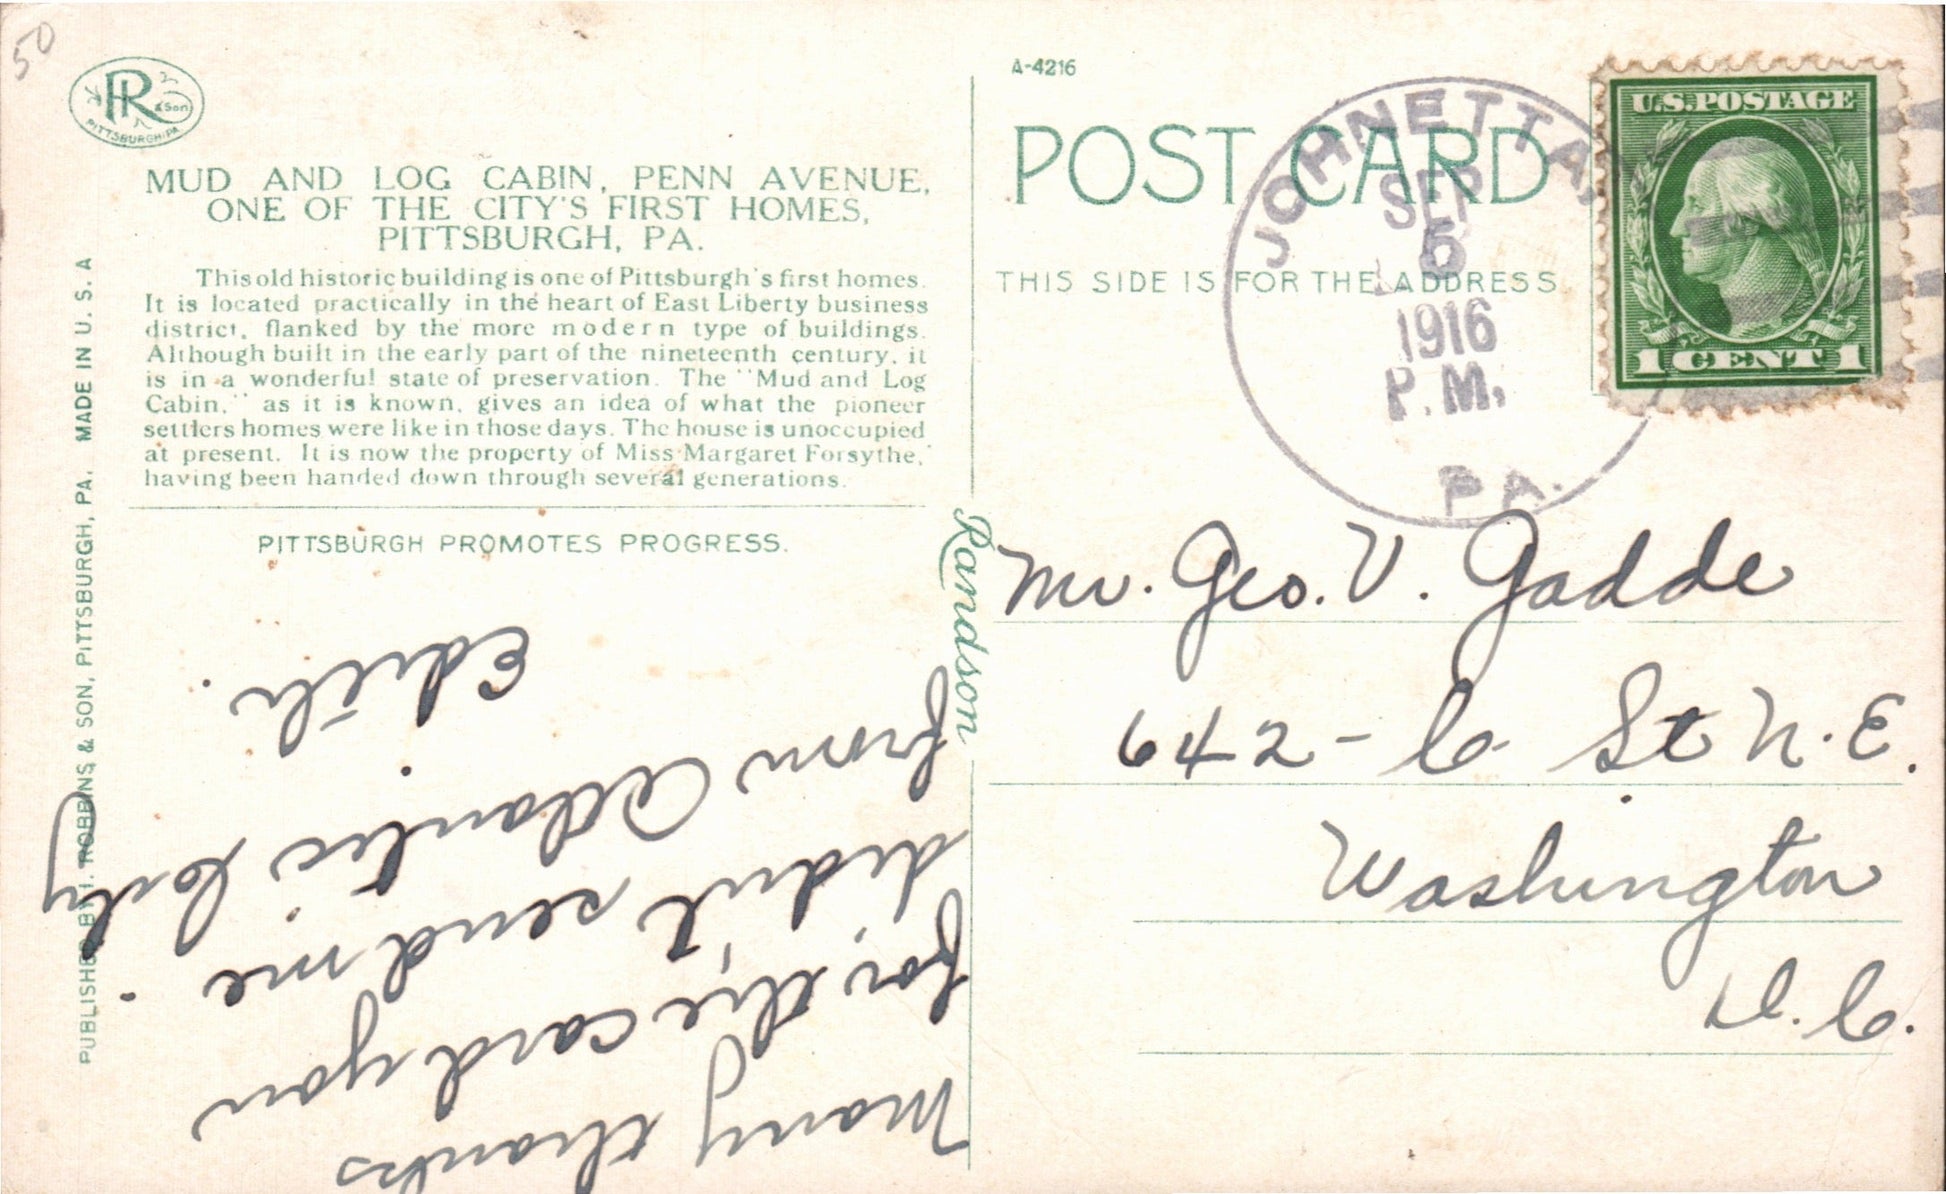 50
PR & Son
PITTSBURGH, PA.
MUD AND LOG CABIN, PENN AVENUE,
ONE OF THE CITY'S FIRST HOMES,
PITTSBURGH, PA.
This old historic building is one of Pittsburgh's first homes.
It is located practically in the heart of East Liberty business
district, flanked by the more modern type of buildings.
Although built in the early part of the nineteenth century, it
is in a wonderful state of preservation. The "Mud and Log
Cabin," as it is known, gives an idea of what the pioneer
settlers homes were like in those days. The house is unoccupied
at present. It is now the property of Miss Margaret Forsythe,
having been handed down through several generations.
PITTSBURGH PROMOTES PROGRESS.
PUBLISHED BY I. ROBBINS & SON, PITTSBURGH, PA. MADE IN U. S. A
Randson
Many thanks
for the card you
didn't send me
from Atlantic City
Edith.
A-4216
POST CARD
THIS SIDE IS FOR THE ADDRESS
JOHNETTA,
SEP
5
1916
P.M.
PA.
U.S. POSTAGE
1 CENT 1
Mr. Geo. V. Gadde
642 - C St N.E.
Washington
D.C.